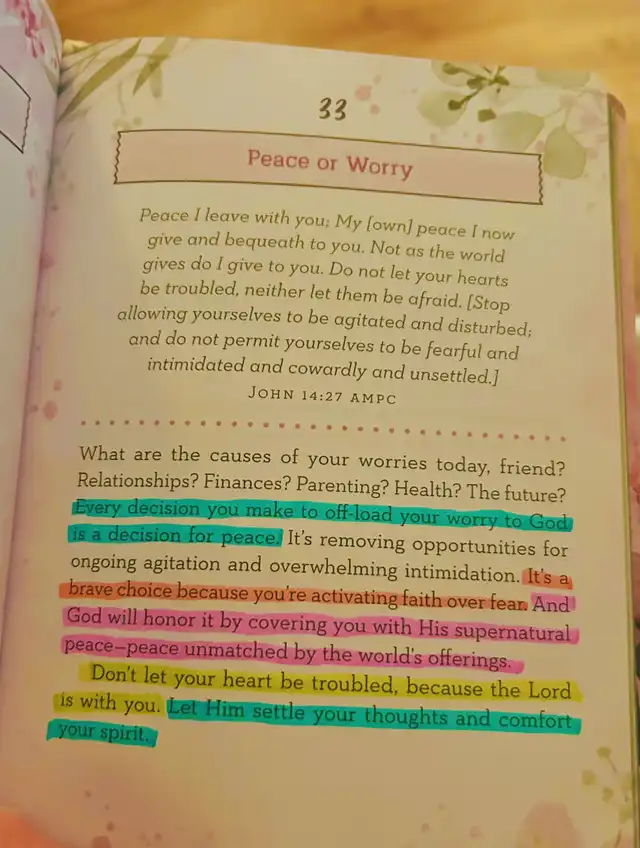 33
Peace or Worry
Peace I leave with you; My [own] peace I now
give and bequeath to you. Not as the world
gives do I give to you. Do not let your hearts
be troubled, neither let them be afraid. [Stop
allowing yourselves to be agitated and disturbed;
and do not permit yourselves to be fearful and
intimidated and cowardly and unsettled.]
JOHN 14:27 AMPC
What are the causes of your worries today, friend?
Relationships? Finances? Parenting? Health? The future?
Every decision you make to off-load your worry to God
is a decision for peace. It's removing opportunities for
ongoing agitation and overwhelming intimidation. It's a
brave choice because you're activating faith over fear. And
God will honor it by covering you with His supernatural
peace—peace unmatched by the world's offerings.
Don't let your heart be troubled, because the Lord
is with you. Let Him settle your thoughts and comfort
your spirit.